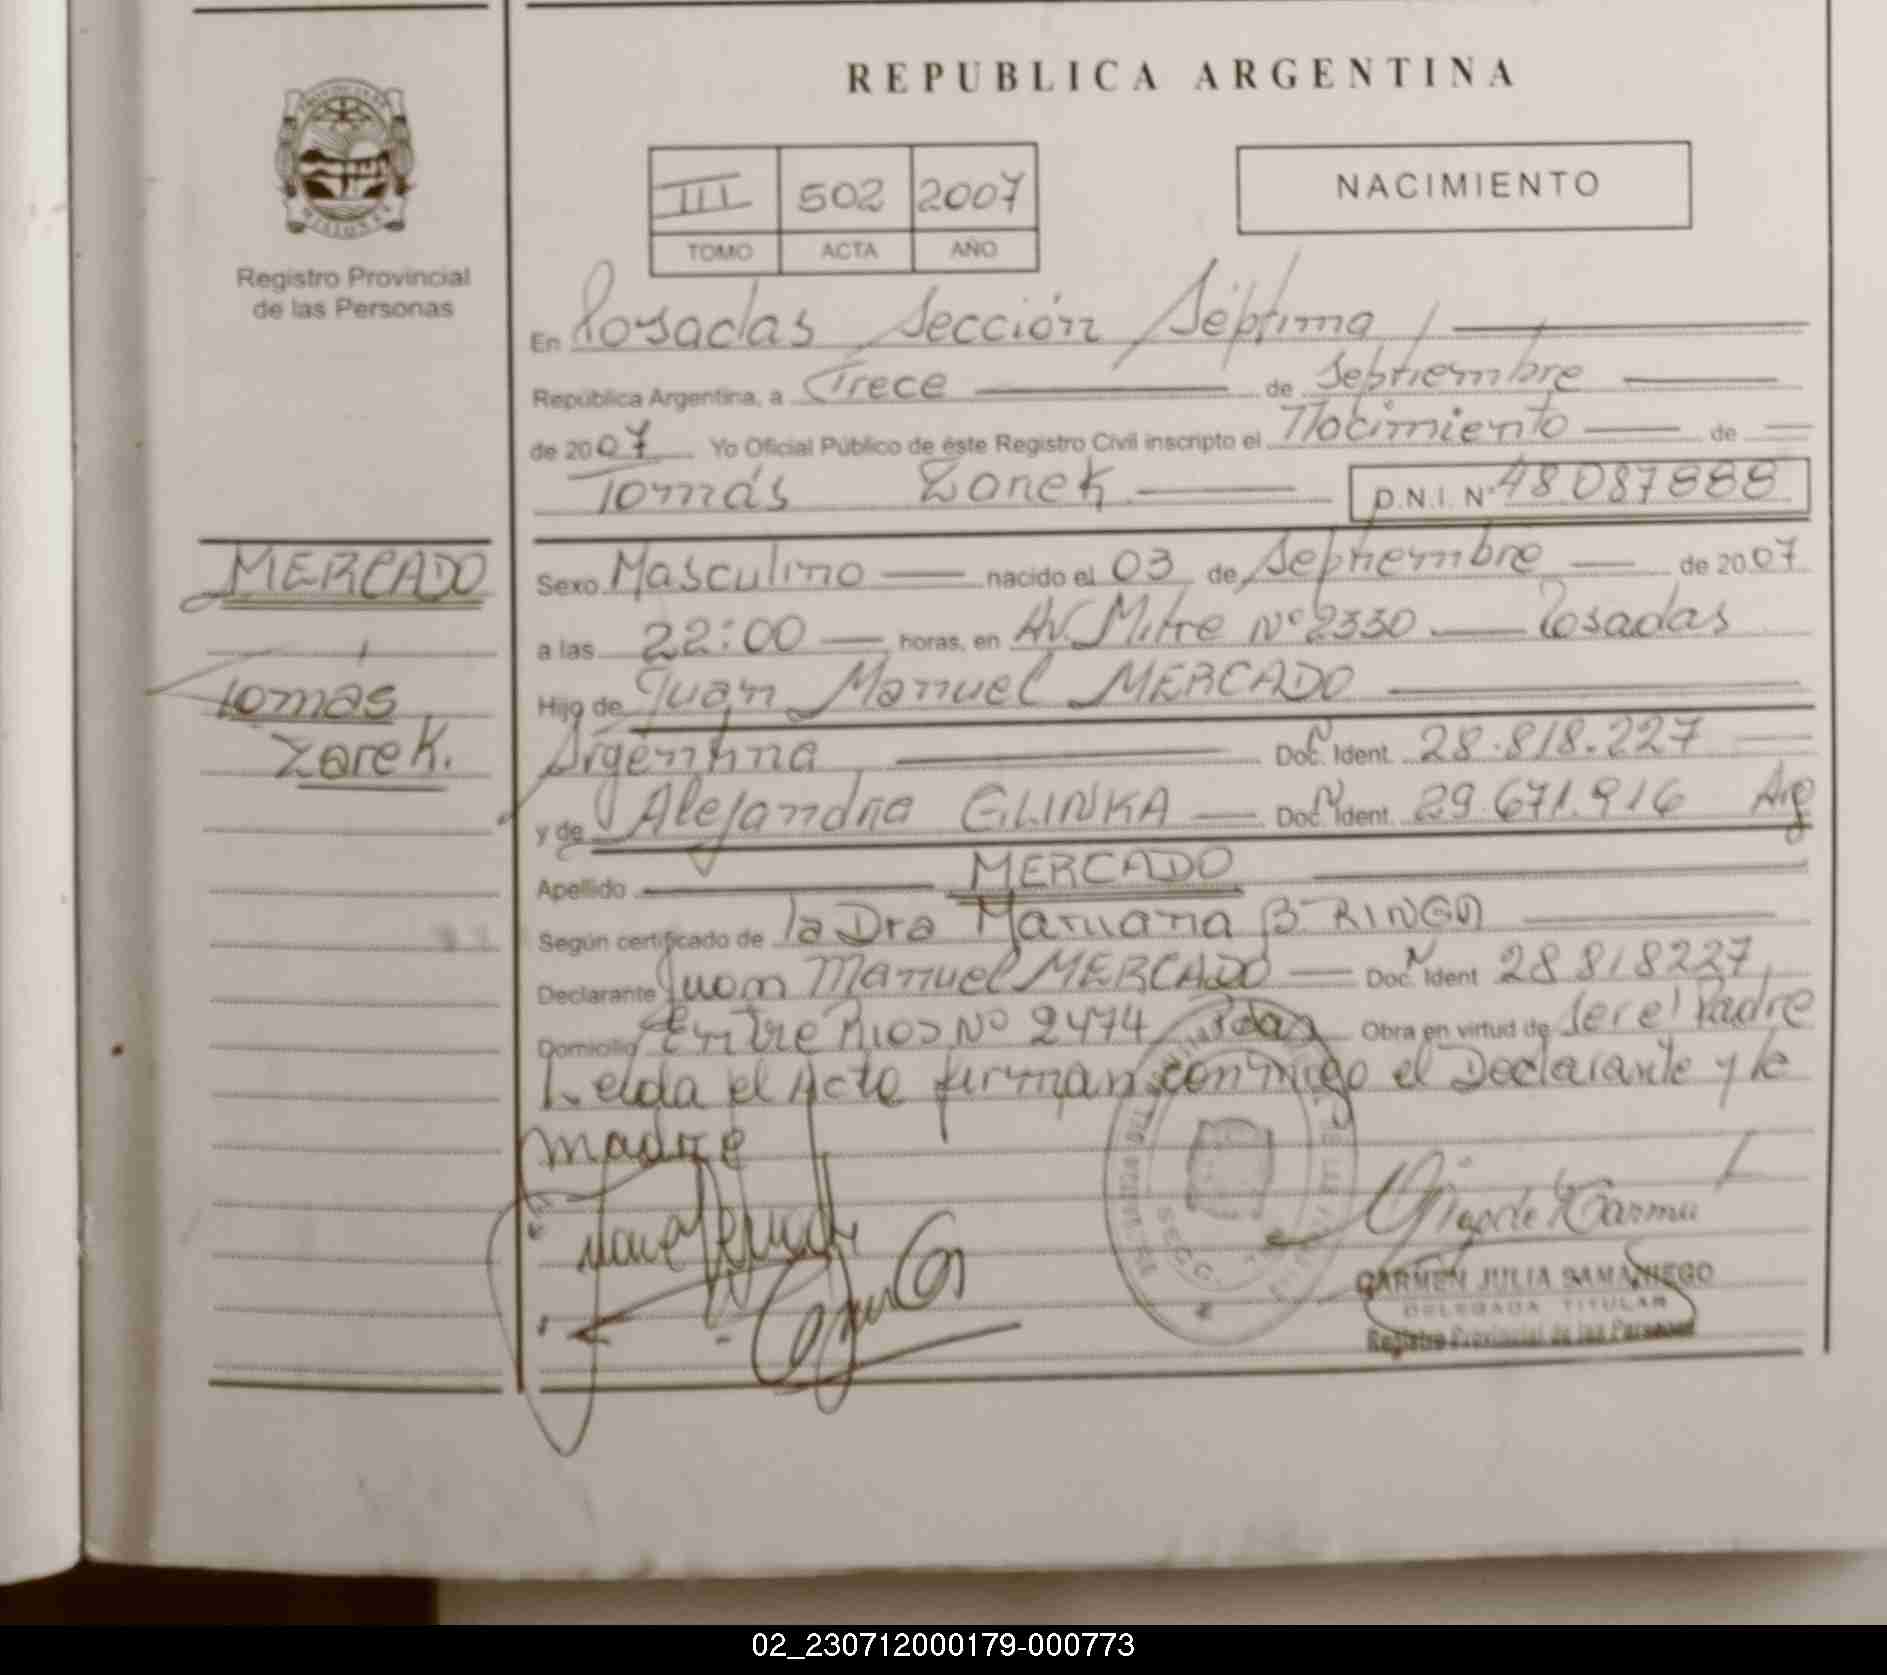 REPUBLICA ARGENTINA
III 502 2007
TOMO ACTA AÑO
NACIMIENTO
Registro Provincial
de las Personas
En Posadas Sección Séptima
República Argentina, a Trece de Septiembre
de 2007 Yo Oficial Público de éste Registro Civil inscripto el Nacimiento de
Tomás Zarek D.N.I. Nº 48087888
MERCADO
Tomás
Zarek.
Sexo Masculino nacido el 03 de Septiembre de 2007
a las 22:00 horas, en Av. Mitre Nº 2330 Posadas
Hijo de Juan Manuel MERCADO
Argentina Doc. Ident. 28.818.227
y de Alejandra GLINKA Doc. Ident. 29.671.916 Arg
Apellido MERCADO
Según certificado de la Dra Mariana B. RINGA
Declarante Juan Manuel MERCADO Doc. Ident 28818227
Domicilio Entre Rios Nº 2474 Pdas Obra en virtud de ser el Padre
Leida el Acta firman conmigo el Declarante y la
madre
SECC.
CARMEN JULIA SAMANIEGO
DELEGADA TITULAR
Registro Provincial de las Personas
02_230712000179-000773